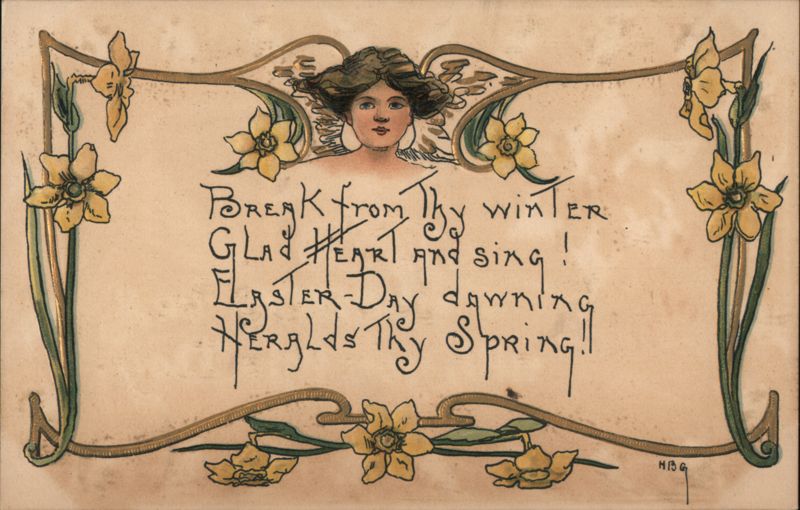 Break from Thy winter
Glad Heart and sing!
Easter-Day dawning
Heralds Thy Spring!!
HBG